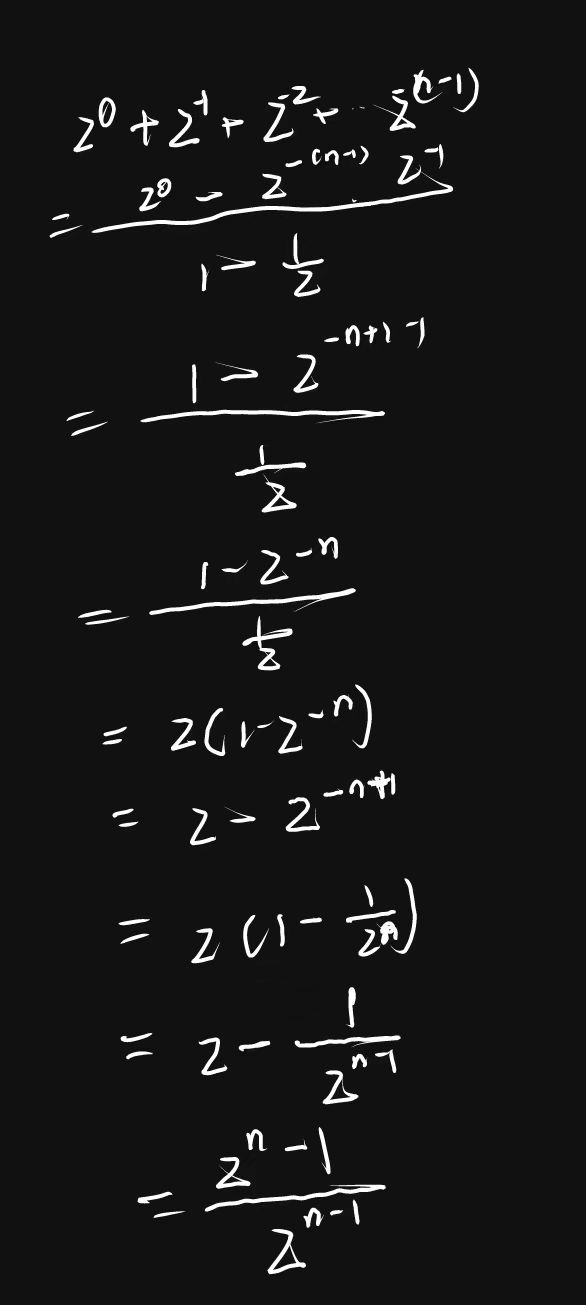 2⁰ + 2⁻¹ + 2⁻² + ... 2⁻⁽ⁿ⁻¹⁾
= (2⁰ - 2⁻⁽ⁿ⁻¹⁾ 2⁻¹) / (1 - 1/2)
= (1 - 2⁻ⁿ⁺¹⁻¹) / (1/2)
= (1 - 2⁻ⁿ) / (1/2)
= 2(1 - 2⁻ⁿ)
= 2 - 2⁻ⁿ⁺¹
= 2(1 - 1/2ⁿ)
= 2 - 1/2ⁿ⁻¹
= (2ⁿ - 1) / 2ⁿ⁻¹